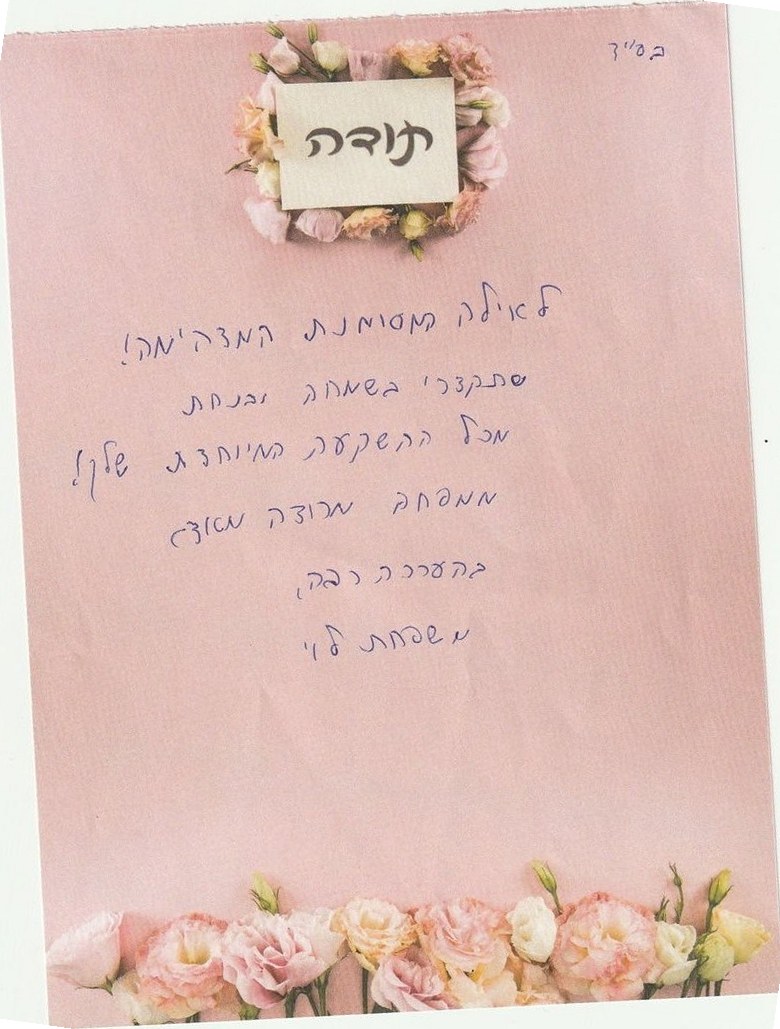 בס"ד
תודה
לאילה המסומנת המדהימה!
שתקצרי בשמחה ובנחת
מכל ההשקעה המיוחדת שלך!
ממפחם מרוצה מאוד
בהערכה רבה,
משפחת לוי